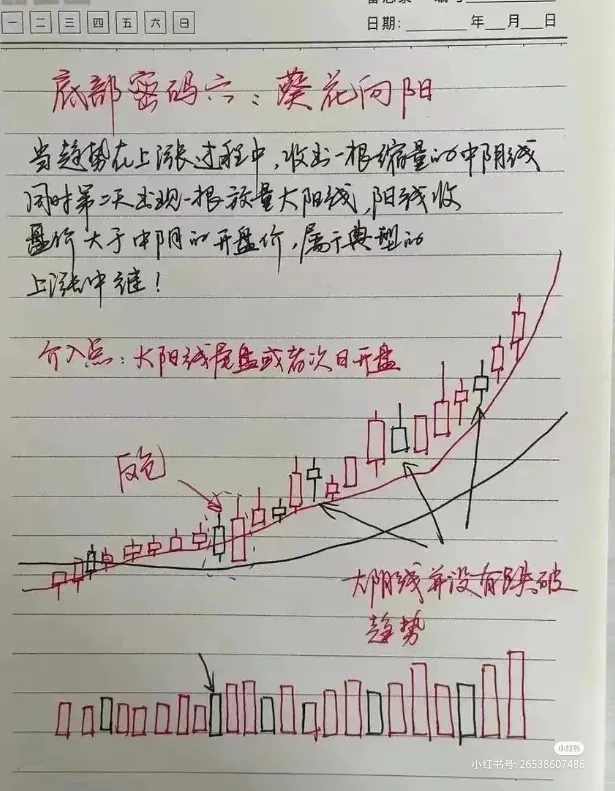 一 二 三 四 五 六 日
日期: 年 月 日
底部密码六：葵花向阳
当趋势在上涨过程中，收出一根缩量的中阴线
同时第二天出现一根放量大阳线，阳线收
盘价大于中阴的开盘价，属于典型的
上涨中继！
介入点：大阳线尾盘或者次日开盘
反包
大阴线并没有跌破
趋势
小红书
小红书号: 26538607486